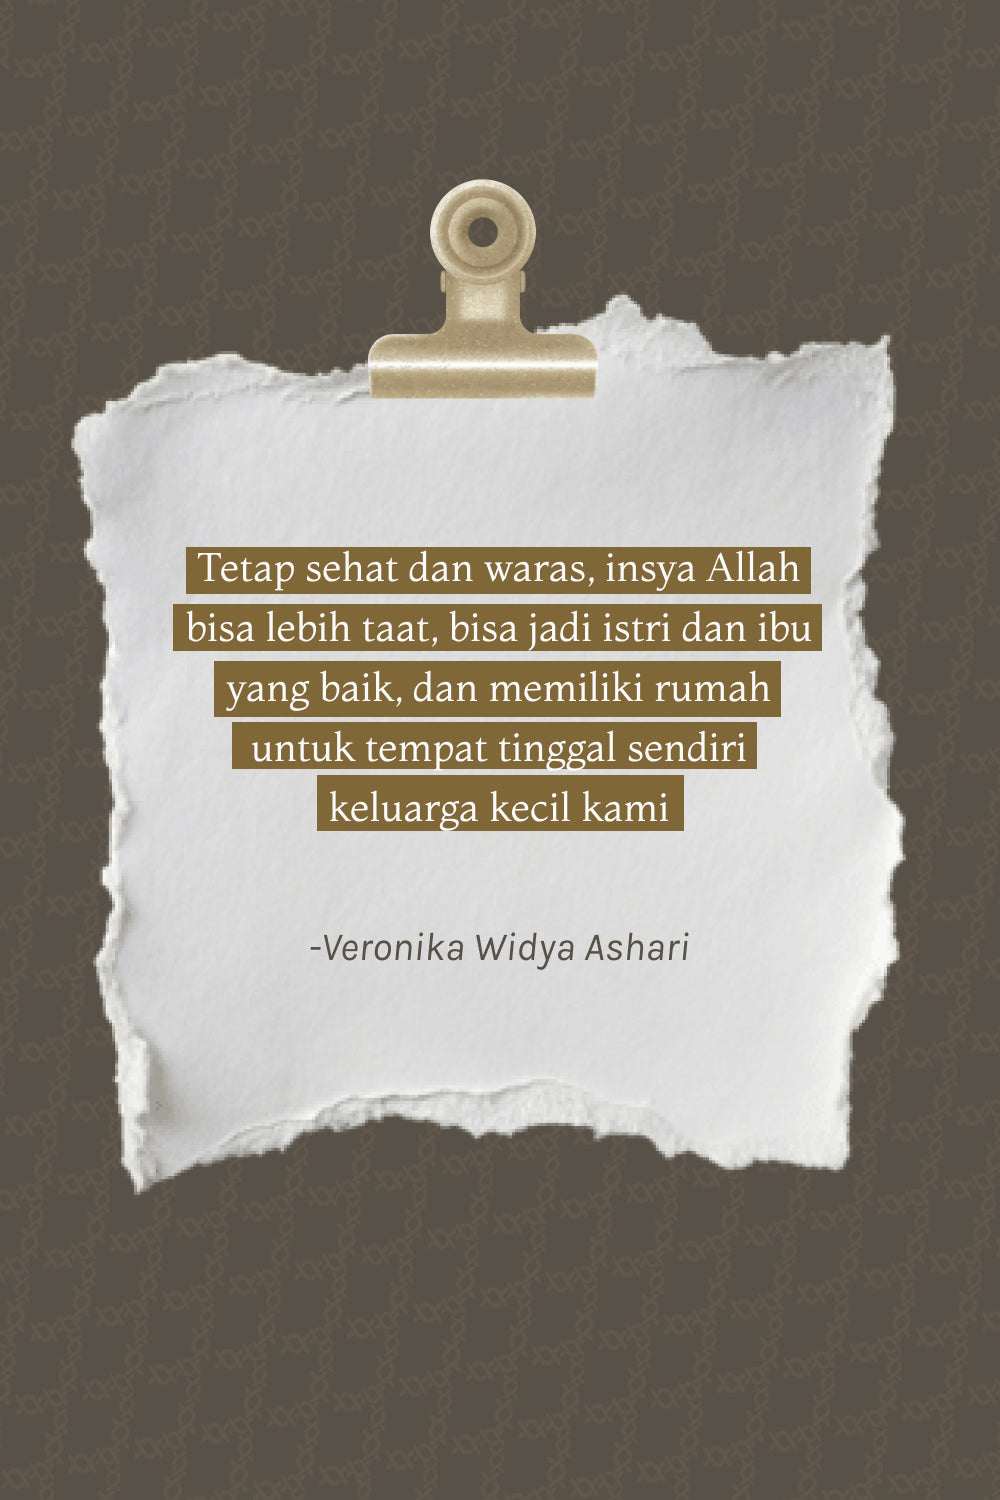 Tetap sehat dan waras, insya Allah
bisa lebih taat, bisa jadi istri dan ibu
yang baik, dan memiliki rumah
untuk tempat tinggal sendiri
keluarga kecil kami
-Veronika Widya Ashari